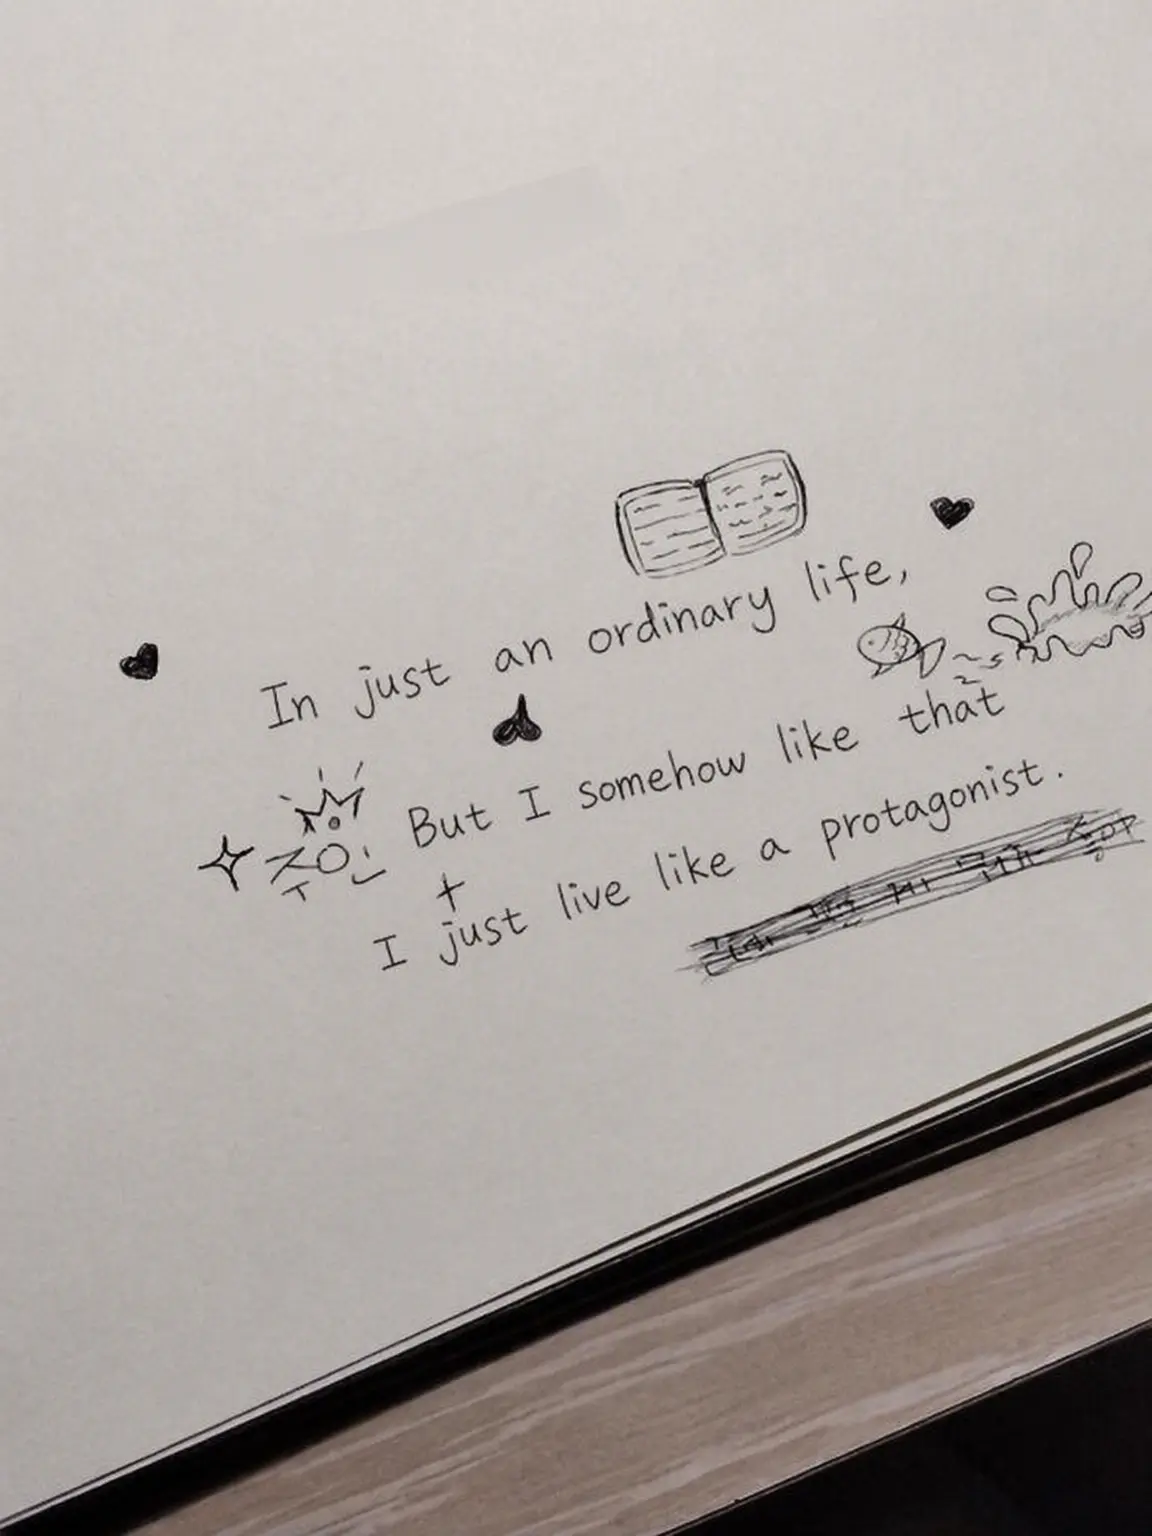 In just an ordinary life,
But I somehow like that
주인
I just live like a protagonist.